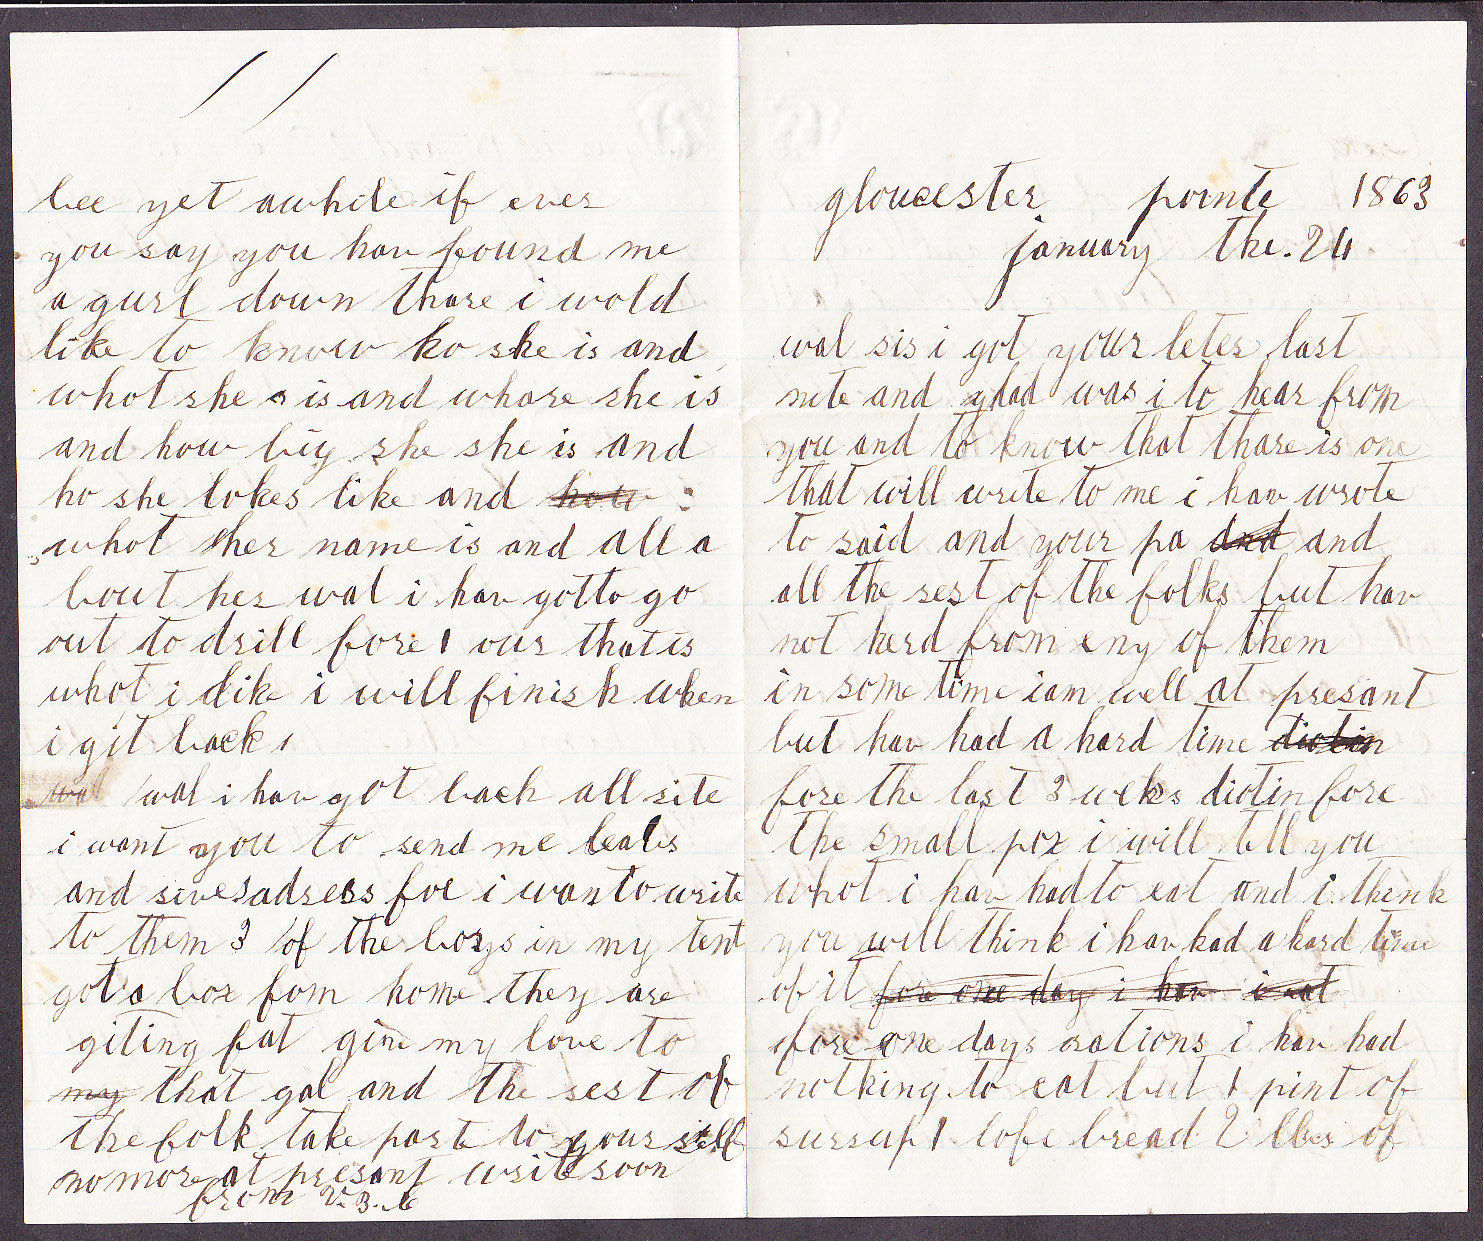 gloucester pointe 1863
january the. 24
wal sis i got your leter last
nite and glad was i to hear from
you and to know that thare is one
that will write to me i hav wrote
to said and your pa and and
all the rest of the folks but hav
not herd from eny of them
in some time iam well at presant
but hav had a hard time diotin
fore the last 3 weks diotin fore
the small pox i will tell you
whot i hav had to eat and i think
you will think i hav had a hard time
of it fore one day i hav i eat
fore one days rations i hav had
nothing to eat but 1 pint of
surrup 1 lofe bread 2 lbs of
bee yet awhile if ever
you say you hav found me
a gurl down thare i wold
like to know ho she is and
whot she is and whare she is
and how big she she is and
ho she lokes like and how
whot her name is and all a
bout her wal i hav got to go
out to drill fore 1 our that is
whot i dike i will finish when
i git back
wal wal i hav got back all rite
i want you to send me
and adress for i wan to write
to them 3 of the boys in my tent
got a box fom home they are
giting fat giv my love to
my that gal and the rest of
the folk take parte to your self
no more at presant write soon
from